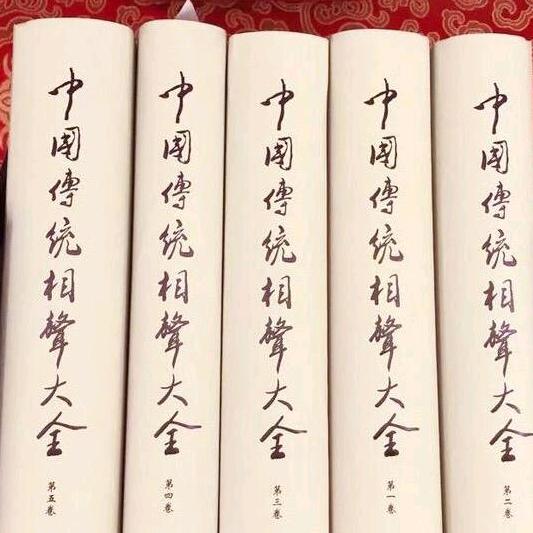 中國傳統相聲大全
第五卷
中國傳統相聲大全
第四卷
中國傳統相聲大全
第三卷
中國傳統相聲大全
第一卷
中國傳統相聲大全
第二卷